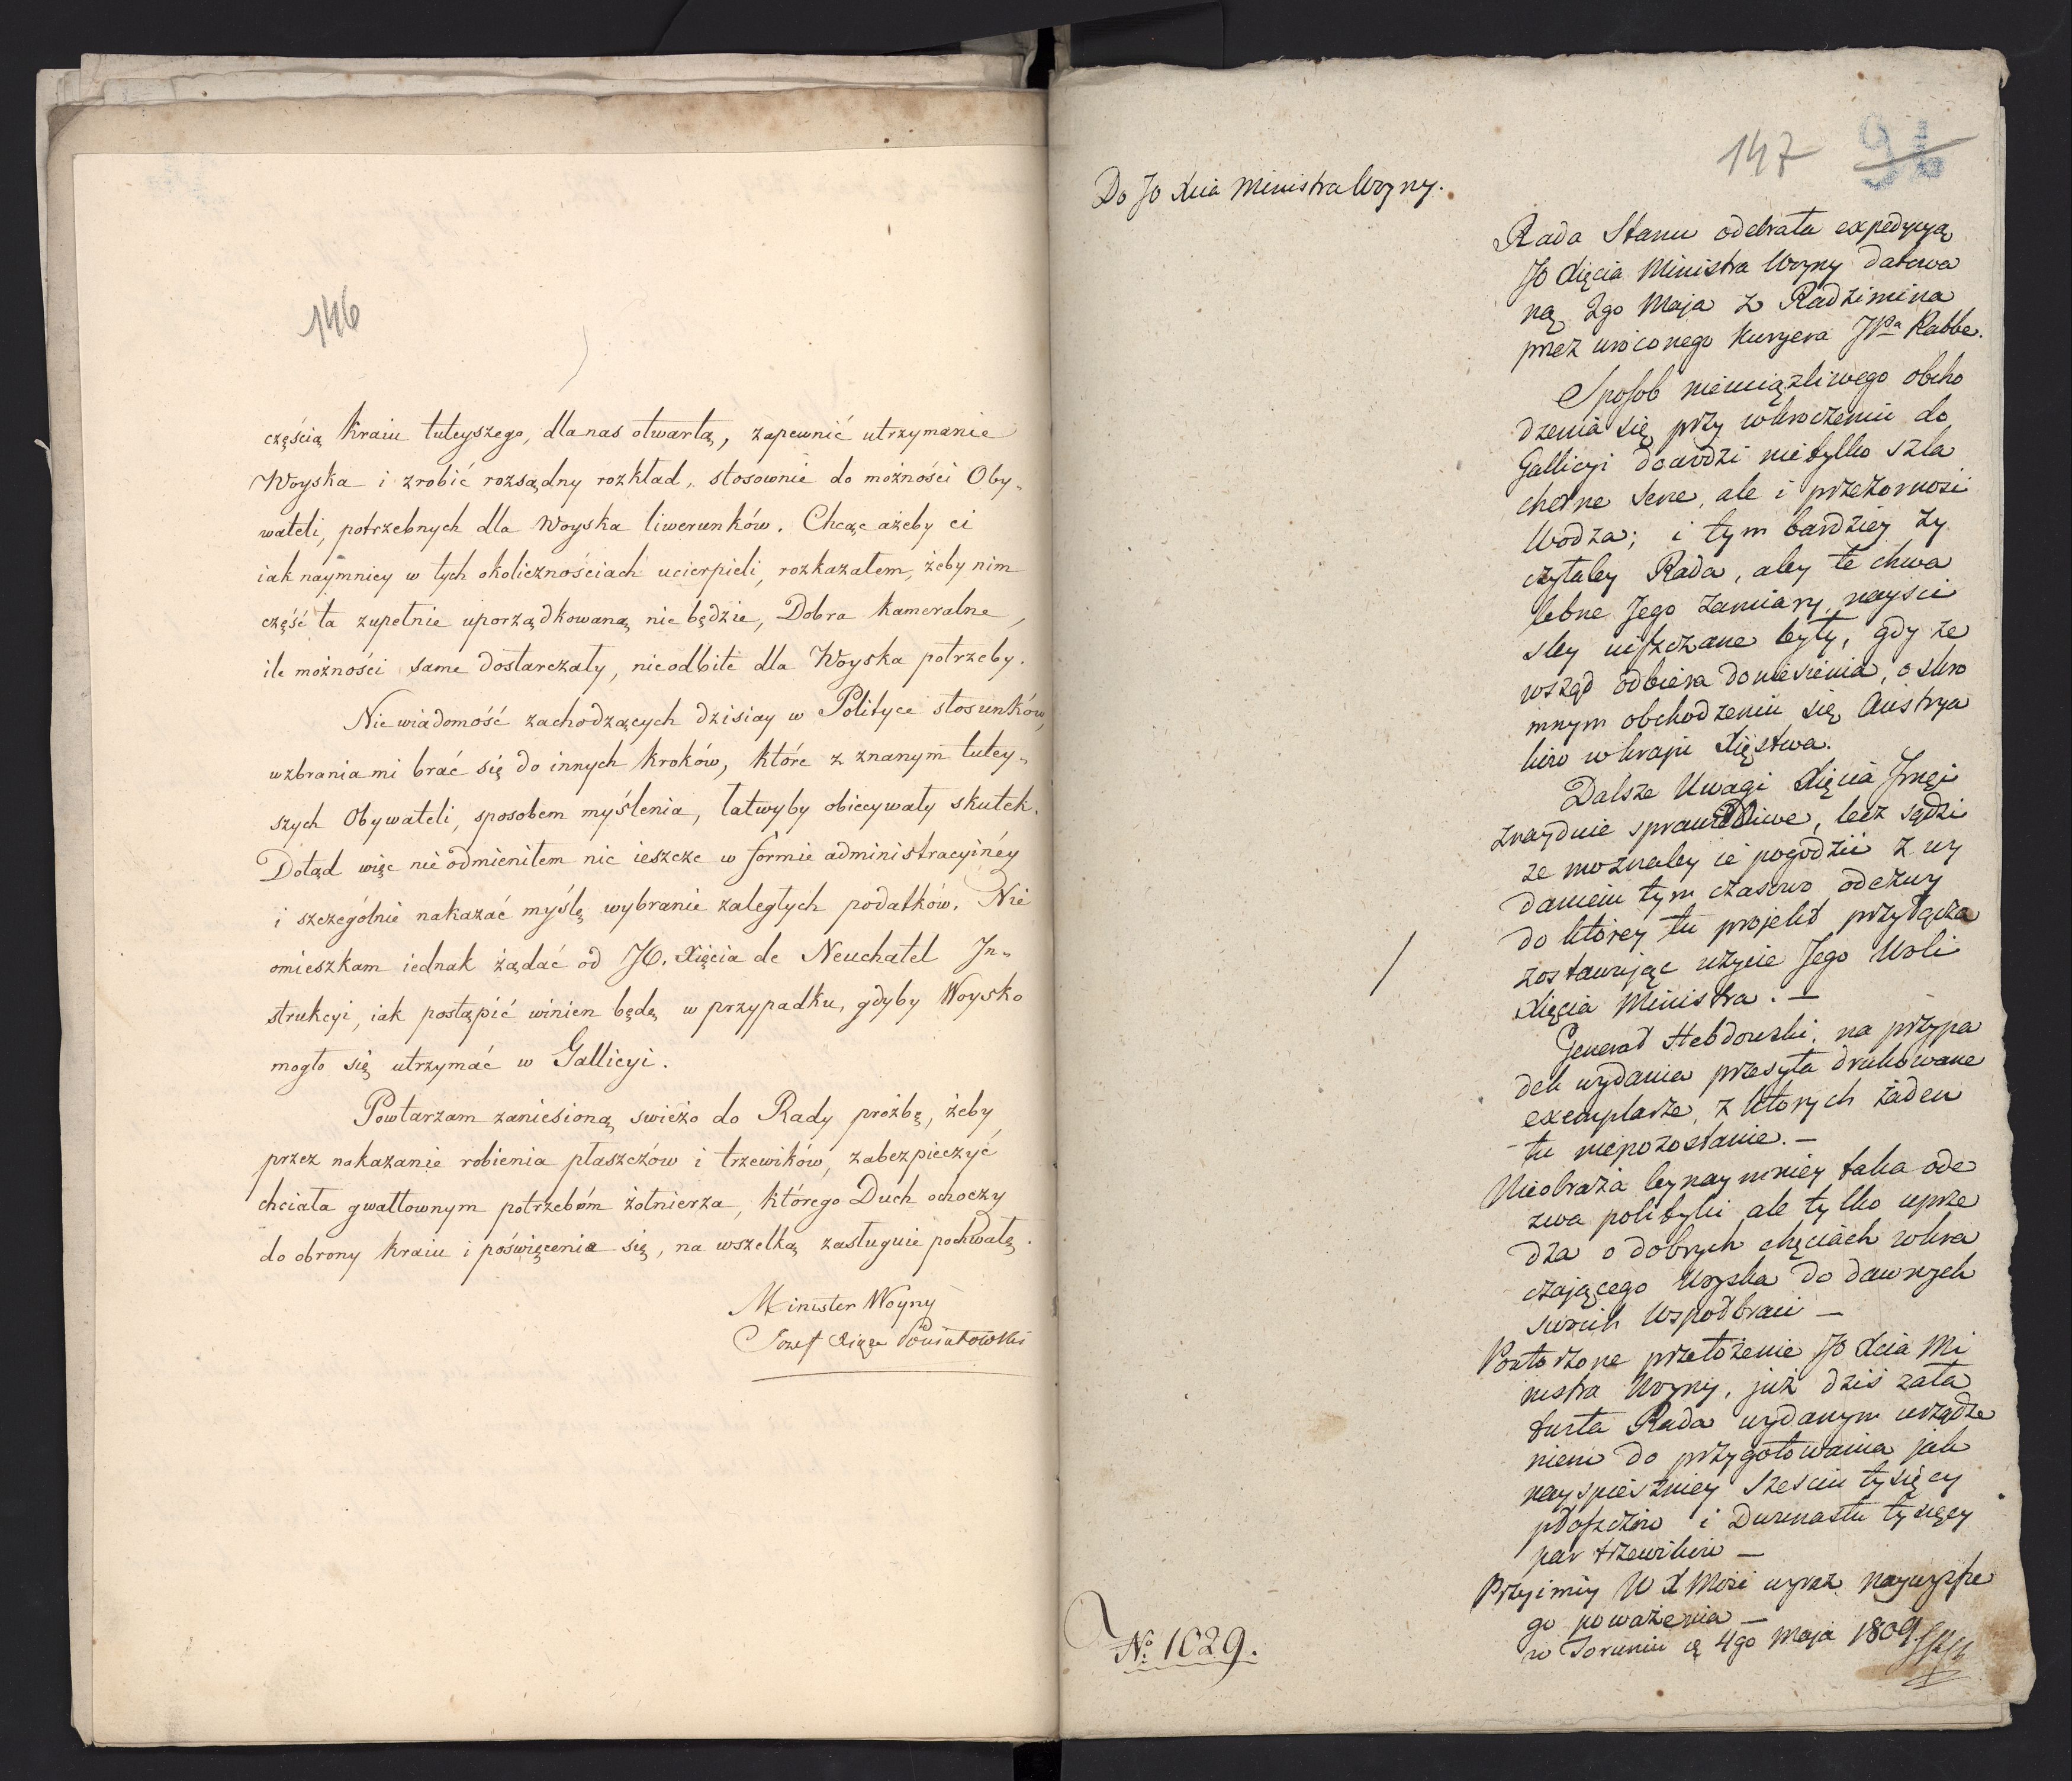 146
częścią Kraiu tuteyszego, dla nas otwartą, zapewnić utrzymanie
Woyska i zrobić rozsądny rozkład, stosownie do możności Oby„
wateli, potrzebnych dla Woyska liwerunków. Chcąc ażeby ci
iak naymniey w tych okolicznościach ucierpieli, rozkazałem, żeby nim
część ta zupełnie uporządkowaną nie będzie, Dobra Kameralne,
ile możności same dostarczały, nieodbite dla Woyska potrzeby.
Niewiadomość zachodzących dzisiay w Polityce stosunków,
wzbrania mi brać się do innych kroków, które z znanym tutey„
szych Obywateli, sposobem myślenia, łatwyby obiecywały skutek.
Dotąd więc nie odmieniłem nic ieszcze w formie administracyiney
i szczególnie nakazać myślę wybranie zaległych podatków. Nie
omieszkam iednak żądać od JO. Xięcia de Neuchatel In„
strukcyi, iak postąpić winien będę w przypadku, gdyby Woysko
mogło się utrzymać w Gallicyi.
Powtarzam zaniesioną świeżo do Rady prożbę, żeby,
przez nakazanie robienia płaszczów i trzewików, zabezpieczyć
chciała gwałtownym potrzebóm żołnierza, którego Duch ochoczy
do obrony Kraiu i poświęcenia się, na wszelką zasługuie pochwałę.
Minister Woyny
Jozef Xiąże Poniatowski
147 96
Do JO Xcia Ministra Woyny.
Rada Stanu odebrała expedycyą
JO Xięcia Ministra Woyny datowa
ną 2go Maja z Radzimina
przez Kuryera JPa Rabbe.
Sposob nieuciążliwego obcho
dzenia się przy wkroczeniu do
Gallicyi dowodzi nietylko szla
chetne Serce, ale i przezorność
Wodza; i tym bardziey ży
czyłaby Rada, aby te chwa
lebne Jego zamiary, nayści
sley uiszczane były, gdy ze
wsząd odbiera doniesienia, o skro
mnym obchodzeniu się Austrya
ków w kraju Xięstwa.
Dalsze Uwagi Xięcia Jmści
znayduie sprawedliwe, lecz sądzi
że możnaby ie pogodzić z wy
daniem tym czasowo odezwy
do którey tu projekt przyłącza
zostawując użycie Jego Woli
Xięcia Ministra. —
Generał Hebdowski, na przypa
dek wydania przesyła drukowane
exemplarze, z których żaden
tu niepozostanie. —
Nieobraża bynaymniey taka ode
zwa polityki ale tylko uprze
dza o dobrych chęciach wkra
czającego Woyska do dawnych
swoich Wspołbraci —
Powtorzone przełożenie JO Xcia Mi
nistra Woyny, już dziś zała
twiła Rada wydanym urządze
niem do przygotowania jak
nayspieszniey Sześciu tysięcy
płaszczów i Dwunastu tysięcy
par trzewików —
Przyimiy W X Mość wyraz naywyższe
go poważenia —
w Toruniu d 4go Maja 1809
No 1029.